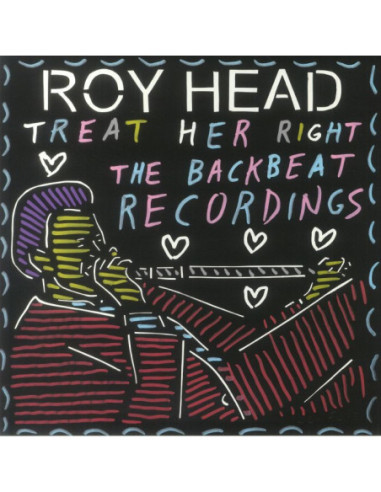 ROY HEAD
TREAT HER RIGHT
THE BACKBEAT
RECORDINGS